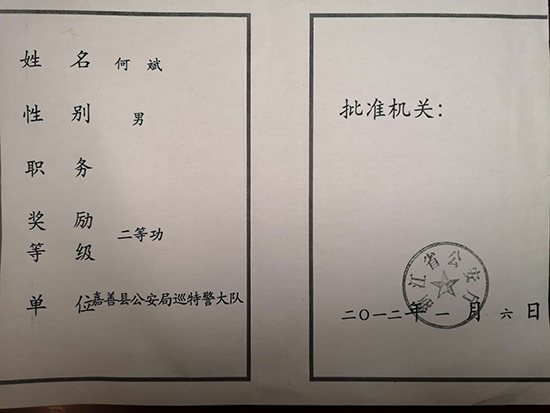 姓名 何斌
性别 男
职务
奖励
等级 二等功
单位 嘉善县公安局巡特警大队
批准机关：
浙江省公安厅
二〇一二年一月六日